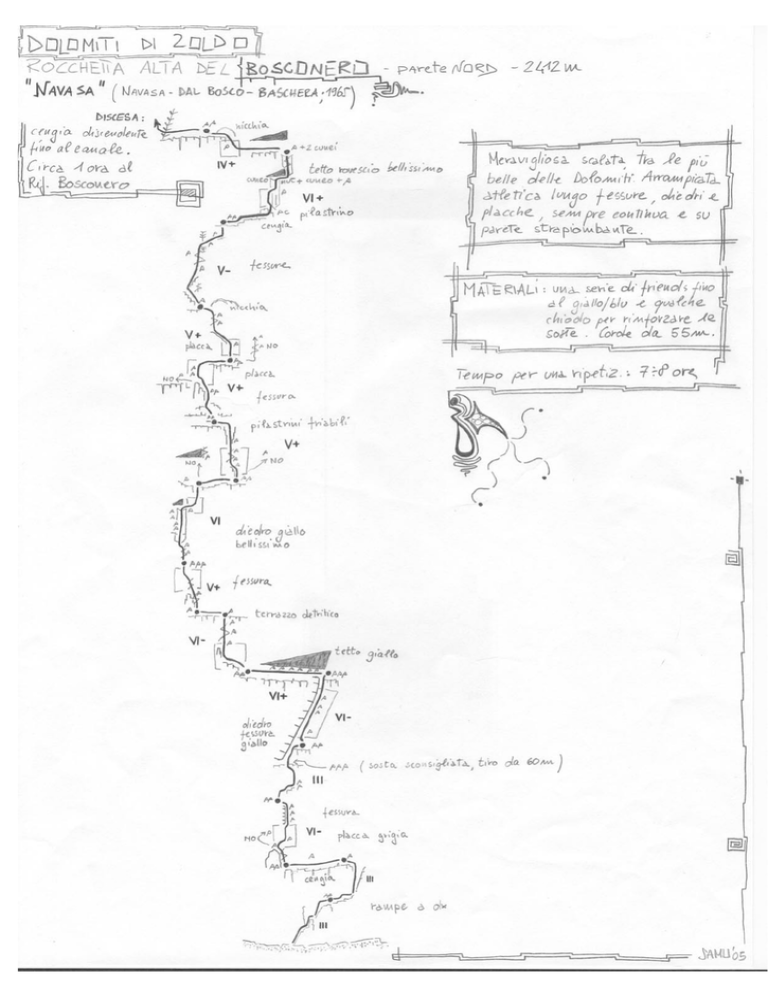 DOLOMITI DI ZOLDO
ROCCHETTA ALTA DEL BOSCONERO - parete NORD - 2412 m
"NAVASA" (NAVASA - DAL BOSCO - BASCHERA, 1965)
DISCESA:
cengia discendente
fino al canale.
Circa 1 ora al
Rif. Bosconero
nicchia
IV+
A + 2 cunei
tetto rovescio bellissimo
VI+
pilastrino
cengia
V-
fessure
nicchia
V+
placca
NO
NO
placca
V+
fessura
pilastrini friabili
V+
NO
NO
VI
diedro giallo
bellissimo
AAA
V+
fessura
terrazzo detritico
VI-
tetto giallo
AAA
VI+
VI-
diedro
fessura
giallo
AA
AAA (sosta sconsigliata, tiro da 60m)
III
fessura
VI-
placca grigia
NO
AA
cengia
III
rampe a dx
III
Meravigliosa scalata tra le più
belle delle Dolomiti. Arrampicata
atletica lungo fessure, diedri e
placche, sempre continua e su
parete strapiombante.
MATERIALI: una serie di friends fino
al giallo/blu e qualche
chiodo per rinforzare le
soste. Corde da 55m.
Tempo per una ripetiz.: 7÷8 ore
SAMU'05